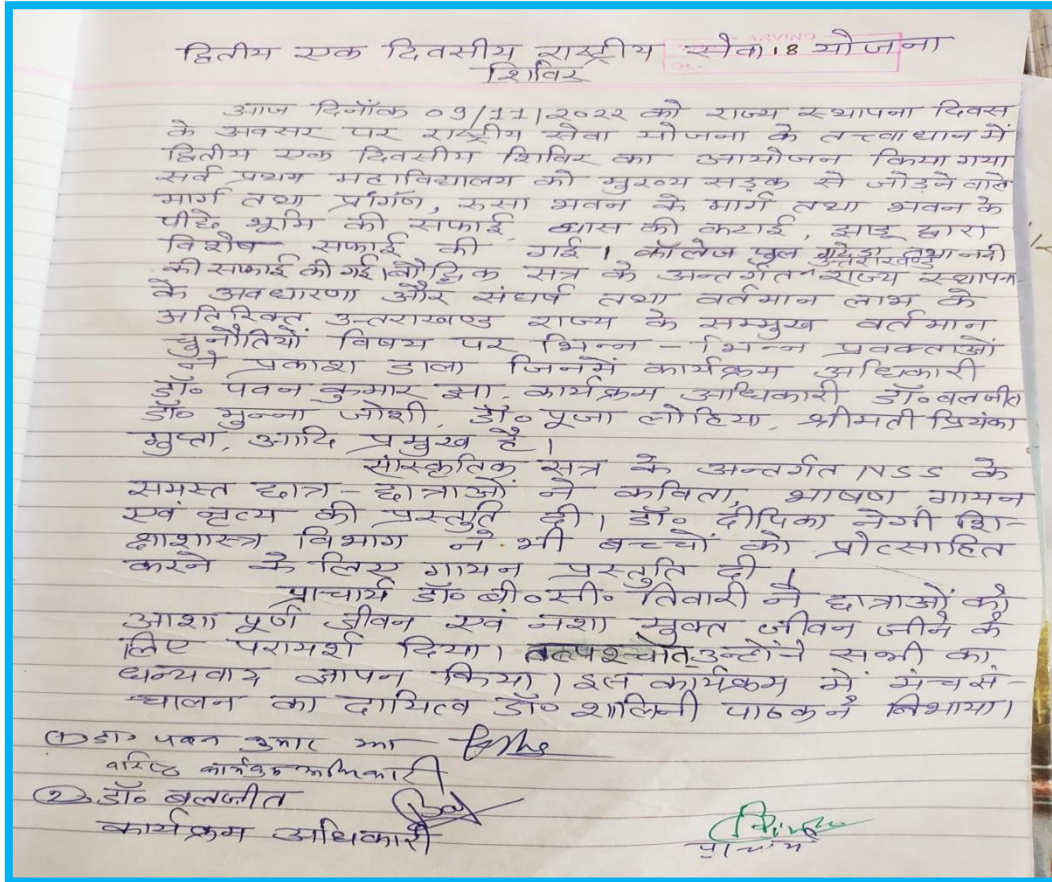 द्वितीय एक दिवसीय राष्ट्रीय सेवा 18 योजना
शिविर
आज दिनाँक 09/11/2022 को राज्य स्थापना दिवस
के अवसर पर राष्ट्रीय सेवा योजना के तत्वाधान में
द्वितीय एक दिवसीय शिविर का आयोजन किया गया
सर्व प्रथम महाविद्यालय को मुख्य सड़क से जोड़ने वाले
मार्ग तथा प्राँगण, रुसा भवन के मार्ग तथा भवन के
पीछे भूमि की सफाई, घास की कटाई, झाडू द्वारा
विशेष सफाई की गई। कॉलेज पुल तथा नदी
उत्तराखण्ड
की सफाई की गई। बौद्धिक सत्र के अन्तर्गत राज्य स्थापना
के अवधारणा और संघर्ष तथा वर्तमान लाभ के
अतिरिक्त उत्तराखण्ड राज्य के सम्मुख वर्तमान
चुनौतियों विषय पर भिन्न - भिन्न प्रवक्ताओं
ने प्रकाश डाला जिनमें कार्यक्रम अधिकारी
डॉ॰ पवन कुमार झा, कार्यक्रम अधिकारी डॉ॰ बलजीत
डॉ॰ मुन्ना जोशी, डॉ॰ पूजा लोहिया, श्रीमती प्रियंका
गुप्ता, आदि प्रमुख है।
सांस्कृतिक सत्र के अन्तर्गत NSS के
समस्त छात्र - छात्राओं ने कविता, भाषण गायन
एवं नृत्य की प्रस्तुति दी। डॉ॰ दीपिका नेगी शि-
क्षाशास्त्र विभाग ने भी बच्चों को प्रोत्साहित
करने के लिए गायन प्रस्तुति दी।
प्राचार्य डॉ॰ बी॰ सी॰ तिवारी ने छात्राओं को
आशा पूर्ण जीवन एवं नशा मुक्त जीवन जीने के
लिए परामर्श दिया। तत्पश्चात उन्होंने सभी का
धन्यवाद ज्ञापन किया। इस कार्यक्रम में मंच सं-
चालन का दायित्व डॉ॰ शालिनी पाठक ने निभाया।
① डा॰ पवन कुमार झा
वरिष्ठ कार्यक्रम अधिकारी
② डॉ॰ बलजीत
कार्यक्रम अधिकारी
प्राचार्य